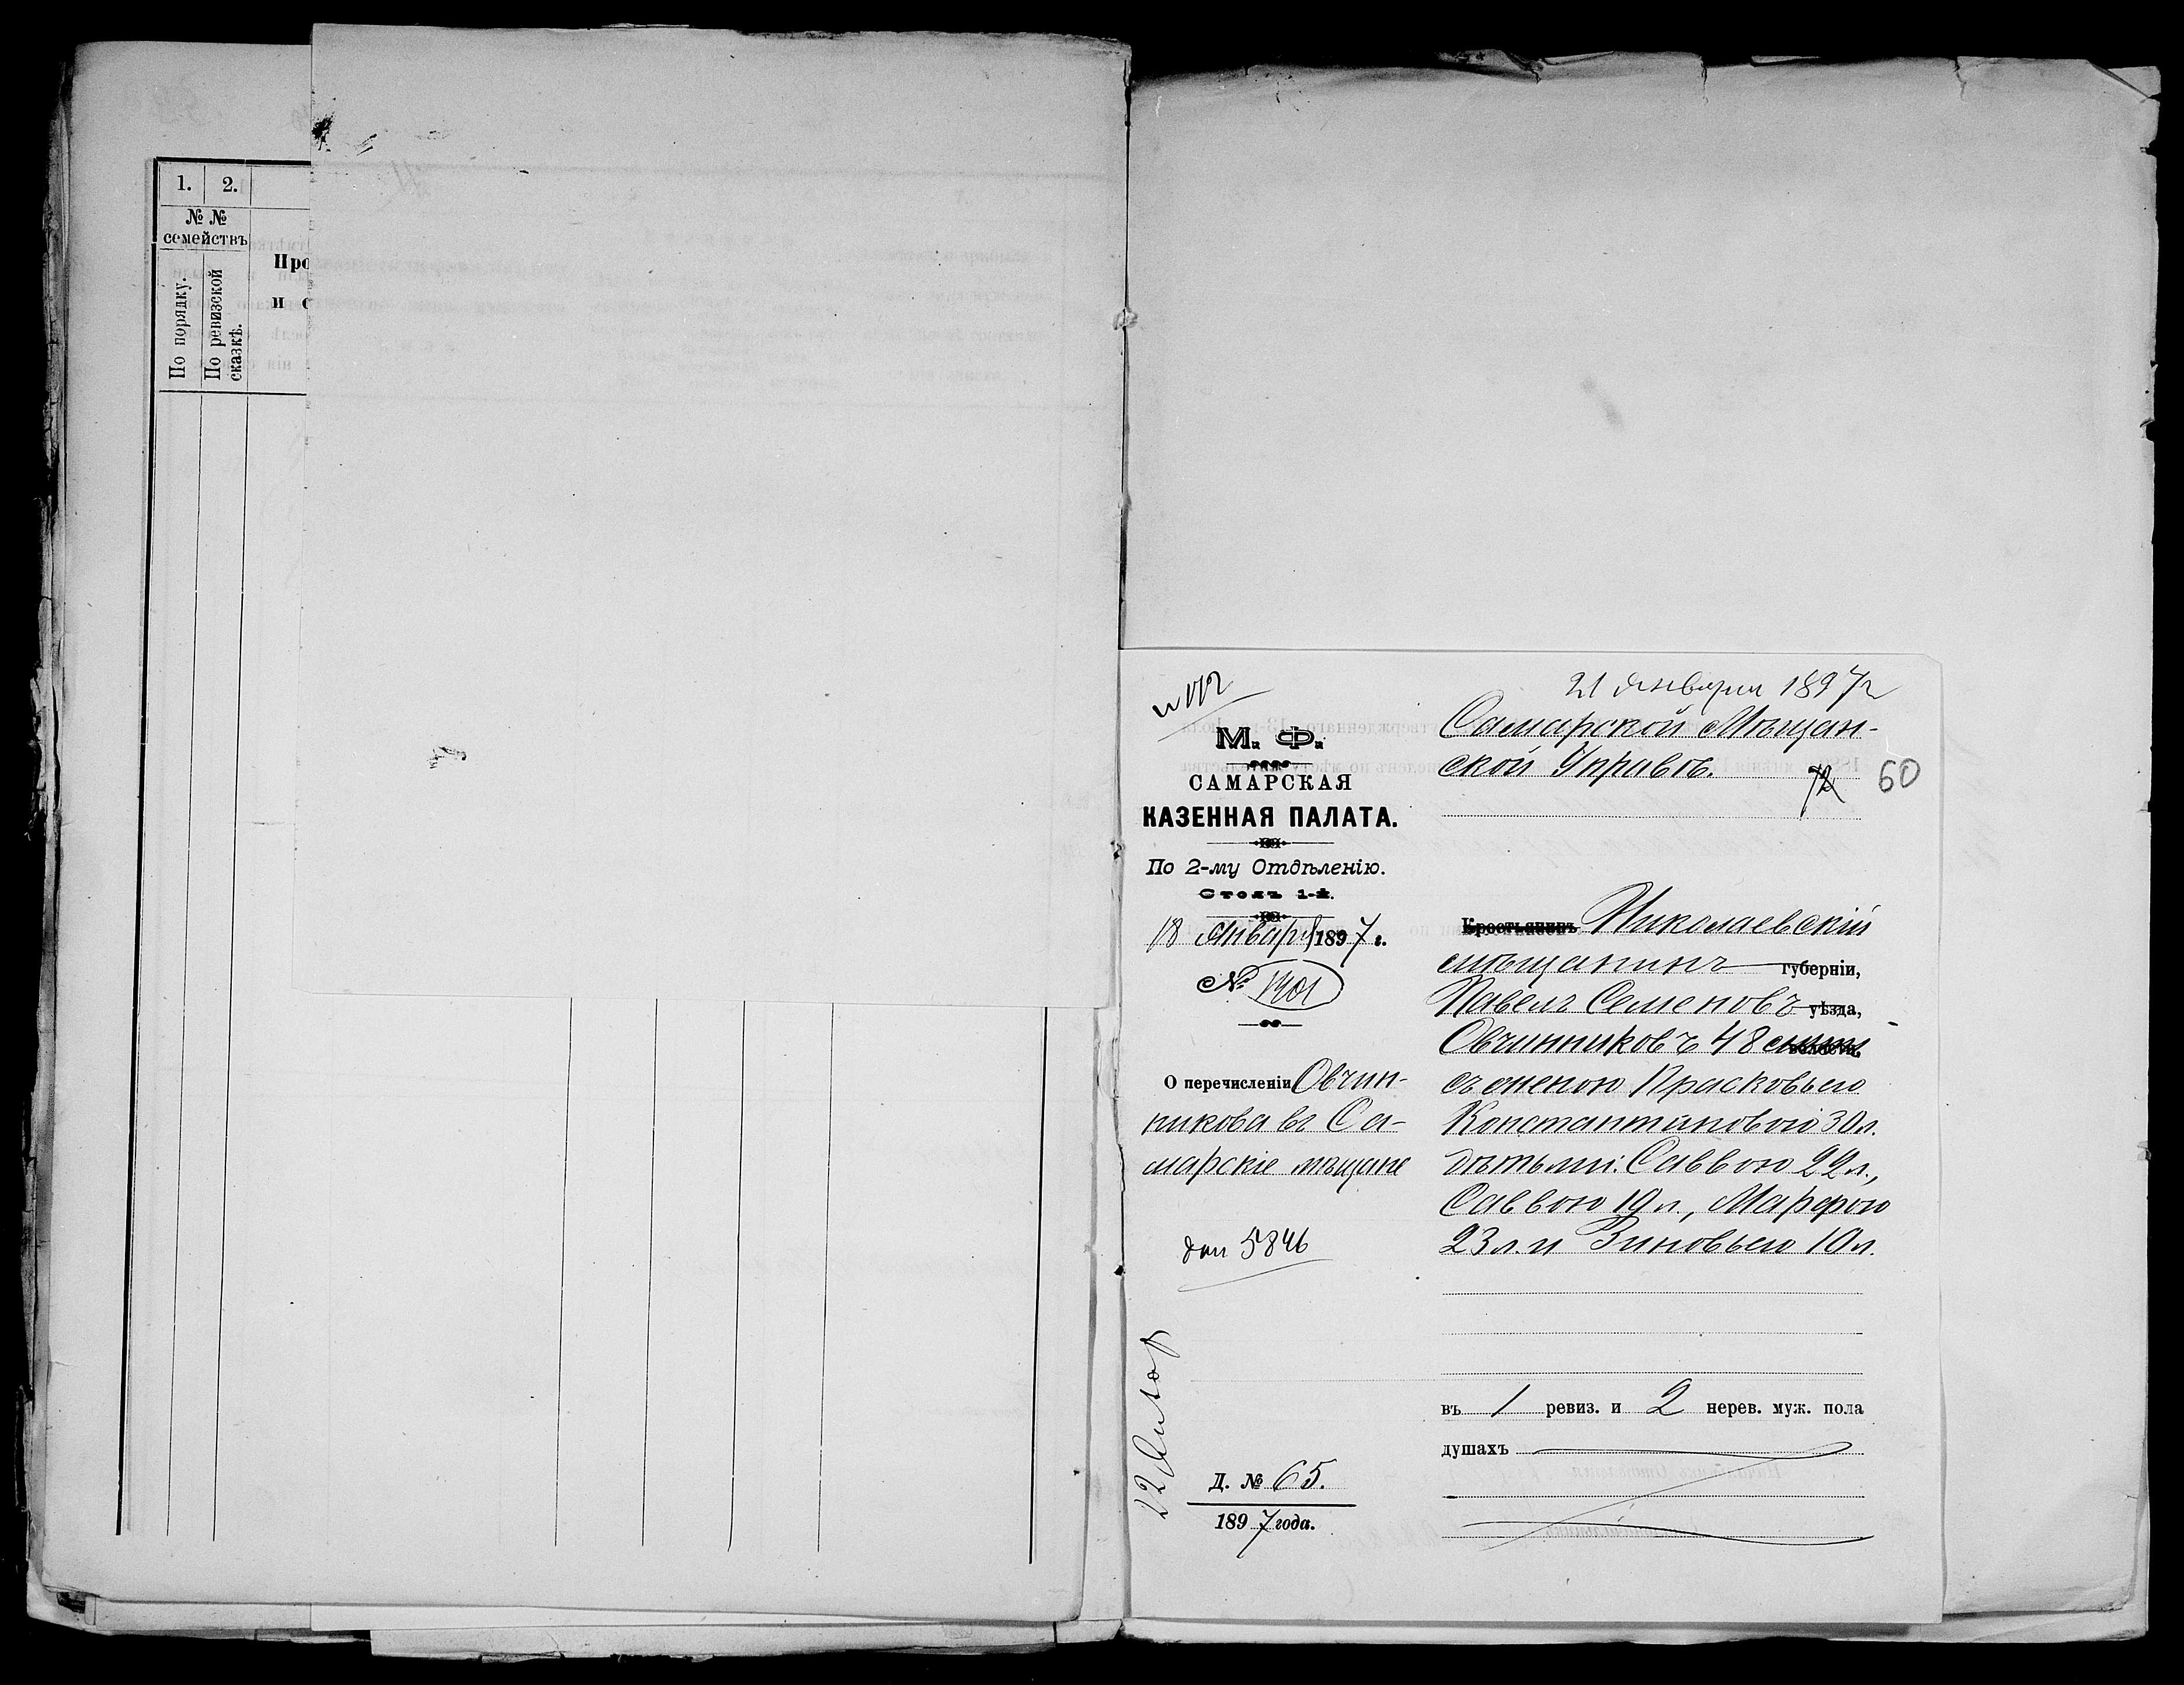 1. 2.
№ №
семействъ
По порядку.
По ревизской
сказкѣ.
Про
и с
21 Января 1897 г
М. Ф.
САМАРСКАЯ
КАЗЕННАЯ ПАЛАТА.
По 2-му Отдѣленію.
Столъ 1-й.
18 Января 1897 г.
№ 1401
О перечисленіи Овчин-
никова въ Са-
марскіе мѣщане
5846
22 Янв
Д. № 65.
1897 года.
Самарской Мѣщан-
ской Управѣ.
72 60
Крестьянинъ Николаевскій
мѣщанинъ губерніи,
Павелъ Семеновъ уѣзда,
Овчинниковъ 48 волости,
съ женою Прасковьею
Константиновою 30 л.
дѣтьми: Саввою 22 л.,
Саввою 19 л., Марфою
23 л. и Зиновьею 10 л.
въ 1 ревиз. и 2 нерев. муж. пола
душахъ